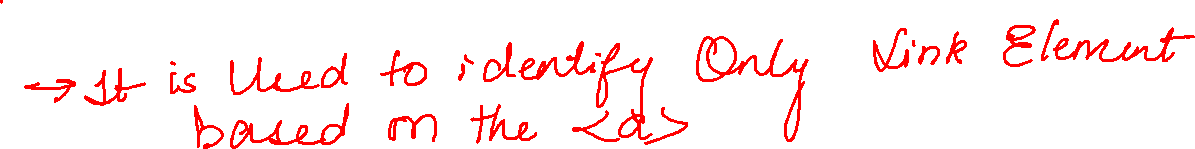 → It is Used to identify Only Link Element
based on the <a>